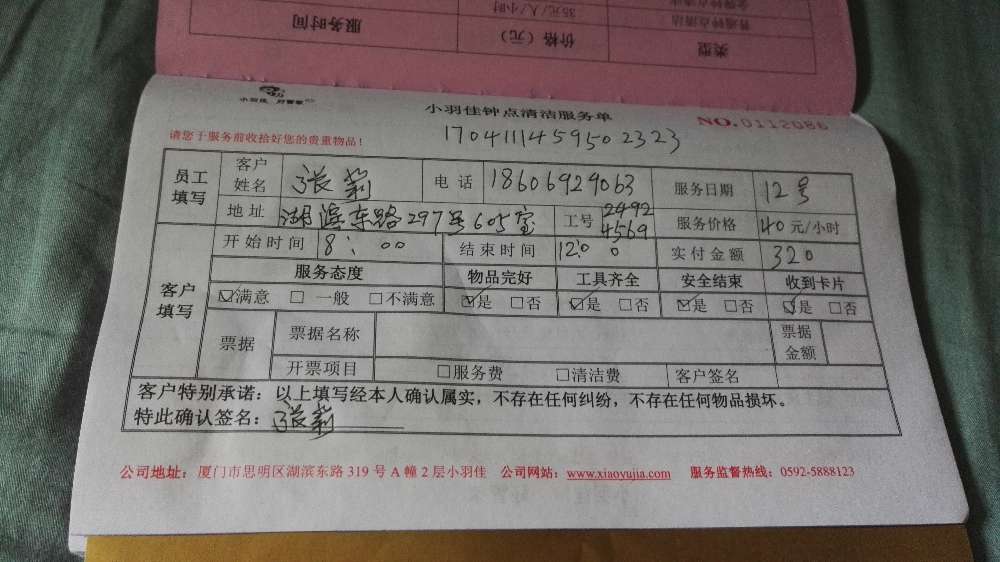 服务时间 价格（元） 类型
35元/人/小时 普通钟点清洁
小羽佳 好管家
小羽佳钟点清洁服务单
NO.0112086
请您于服务前收拾好您的贵重物品！
1704111459502323
员工填写 客户姓名 张莉 电话 18606929063 服务日期 12号
地址 湖滨东路297号605室 工号 2492 4569 服务价格 40元/小时
客户填写 开始时间 8:00 结束时间 12:00 实付金额 320
服务态度 物品完好 工具齐全 安全结束 收到卡片
☑满意 □一般 □不满意 ☑是 □否 ☑是 □否 ☑是 □否 ☑是 □否
票据 票据名称 票据金额
开票项目 □服务费 □清洁费 客户签名
客户特别承诺：以上填写经本人确认属实，不存在任何纠纷，不存在任何物品损坏。
特此确认签名：张莉
公司地址：厦门市思明区湖滨东路319号A幢2层小羽佳 公司网站：www.xiaoyujia.com 服务监督热线：0592-5888123